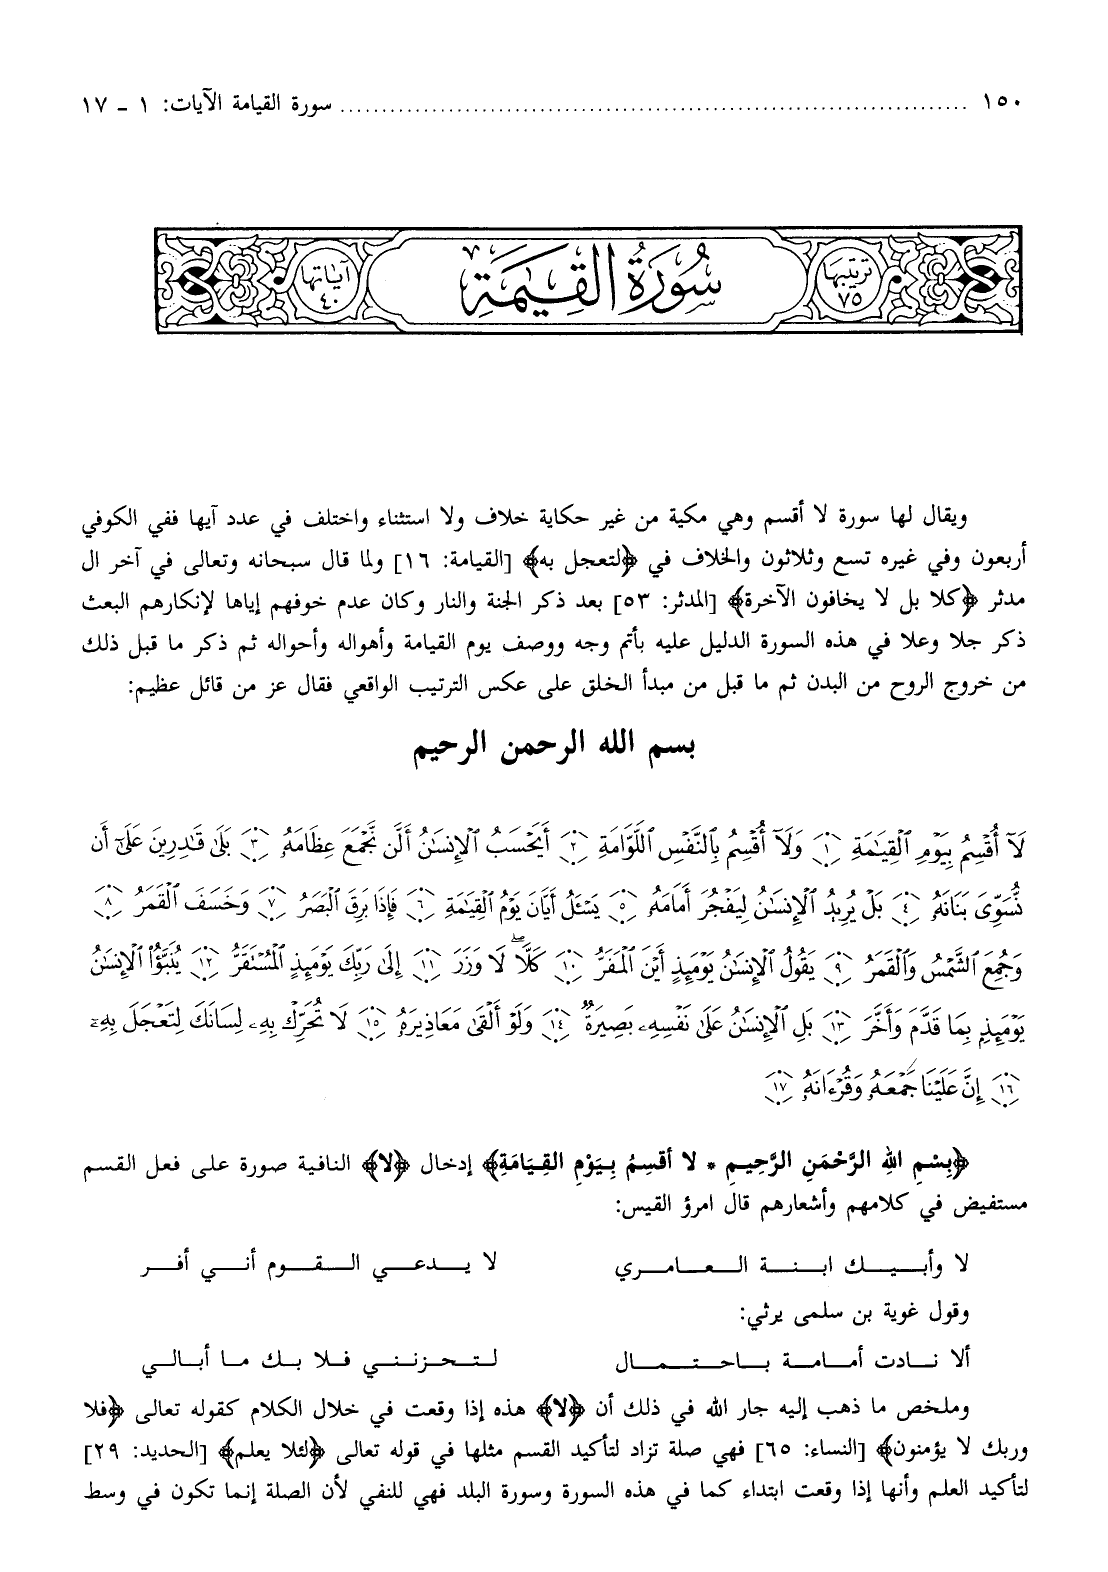 ١٥٠ ........................................................................ سورة القيامة الآيات: ١ - ١٧
ترتيبها ٧٥
سُورَةُ القِيَٰمَةِ
آياتها ٤٠
ويقال لها سورة لا أقسم وهي مكية من غير حكاية خلاف ولا استثناء واختلف في عدد آيها ففي الكوفي
أربعون وفي غيره تسع وثلاثون والخلاف في ﴿لتعجل به﴾ [القيامة: ١٦] ولما قال سبحانه وتعالى في آخر ال
مدثر ﴿كلا بل لا يخافون الآخرة﴾ [المدثر: ٥٣] بعد ذكر الجنة والنار وكان عدم خوفهم إياها لإنكارهم البعث
ذكر جلا وعلا في هذه السورة الدليل عليه بأتم وجه ووصف يوم القيامة وأهواله وأحواله ثم ذكر ما قبل ذلك
من خروج الروح من البدن ثم ما قبل من مبدأ الخلق على عكس الترتيب الواقعي فقال عز من قائل عظيم:
بسم الله الرحمن الرحيم
لَآ أُقۡسِمُ بِيَوۡمِ ٱلۡقِيَٰمَةِ ١ وَلَآ أُقۡسِمُ بِٱلنَّفۡسِ ٱللَّوَّامَةِ ٢ أَيَحۡسَبُ ٱلۡإِنسَٰنُ أَلَّن نَّجۡمَعَ عِظَامَهُۥ ٣ بَلَىٰ قَٰدِرِينَ عَلَىٰٓ أَن
نُّسَوِّيَ بَنَانَهُۥ ٤ بَلۡ يُرِيدُ ٱلۡإِنسَٰنُ لِيَفۡجُرَ أَمَامَهُۥ ٥ يَسۡـَٔلُ أَيَّانَ يَوۡمُ ٱلۡقِيَٰمَةِ ٦ فَإِذَا بَرِقَ ٱلۡبَصَرُ ٧ وَخَسَفَ ٱلۡقَمَرُ ٨
وَجُمِعَ ٱلشَّمۡسُ وَٱلۡقَمَرُ ٩ يَقُولُ ٱلۡإِنسَٰنُ يَوۡمَئِذٍ أَيۡنَ ٱلۡمَفَرُّ ١٠ كَلَّا لَا وَزَرَ ١١ إِلَىٰ رَبِّكَ يَوۡمَئِذٍ ٱلۡمُسۡتَقَرُّ ١٢ يُنَبَّؤُاْ ٱلۡإِنسَٰنُ
يَوۡمَئِذِۭ بِمَا قَدَّمَ وَأَخَّرَ ١٣ بَلِ ٱلۡإِنسَٰنُ عَلَىٰ نَفۡسِهِۦ بَصِيرَةٞ ١٤ وَلَوۡ أَلۡقَىٰ مَعَاذِيرَهُۥ ١٥ لَا تُحَرِّكۡ بِهِۦ لِسَانَكَ لِتَعۡجَلَ بِهِۦٓ
١٦ إِنَّ عَلَيۡنَا جَمۡعَهُۥ وَقُرۡءَانَهُۥ ١٧
﴿بِسْمِ اللهِ الرَّحْمَنِ الرَّحِيمِ * لا أقسِمُ بِيَوْمِ القِيَامَةِ﴾ إدخال ﴿لا﴾ النافية صورة على فعل القسم
مستفيض في كلامهم وأشعارهم قال امرؤ القيس:
لا وأبيك ابنة العامري لا يدعي القوم أني أفر
وقول غوية بن سلمى يرثي:
ألا نادت أمامة باحتمال لتحزنني فلا بك ما أبالي
وملخص ما ذهب إليه جار الله في ذلك أن ﴿لا﴾ هذه إذا وقعت في خلال الكلام كقوله تعالى ﴿فلا
وربك لا يؤمنون﴾ [النساء: ٦٥] فهي صلة تزاد لتأكيد القسم مثلها في قوله تعالى ﴿لئلا يعلم﴾ [الحديد: ٢٩]
لتأكيد العلم وأنها إذا وقعت ابتداء كما في هذه السورة وسورة البلد فهي للنفي لأن الصلة إنما تكون في وسط